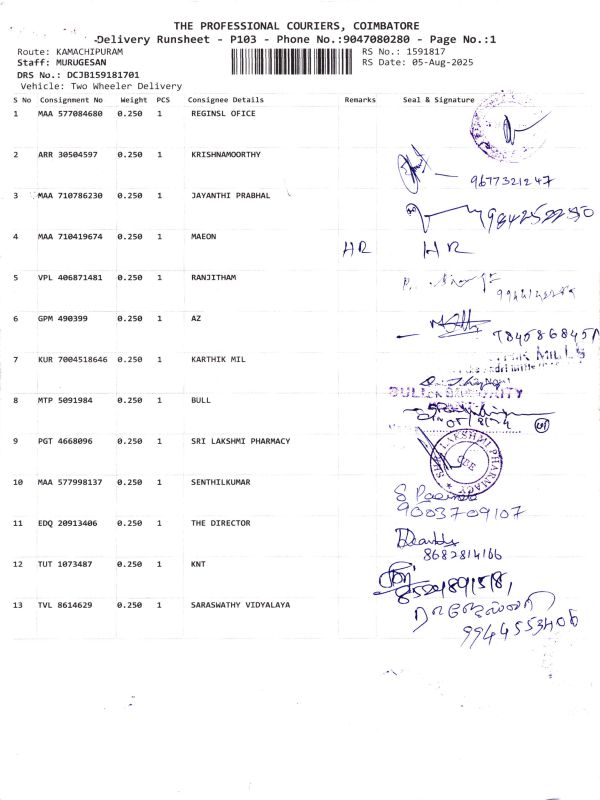 THE PROFESSIONAL COURIERS, COIMBATORE
Delivery Runsheet - P103 - Phone No.:9047080280 - Page No.:1
Route: KAMACHIPURAM RS No.: 1591817
Staff: MURUGESAN RS Date: 05-Aug-2025
DRS No.: DCJB159181701
Vehicle: Two Wheeler Delivery
S No Consignment No Weight PCS Consignee Details Remarks Seal & Signature
1 MAA 577084680 0.250 1 REGINSL OFICE
2 ARR 30504597 0.250 1 KRISHNAMOORTHY
9677321247
3 MAA 710786230 0.250 1 JAYANTHI PRABHAL
4 MAA 710419674 0.250 1 MAEON HR HR
5 VPL 406871481 0.250 1 RANJITHAM
6 GPM 490399 0.250 1 AZ
7 KUR 7004518646 0.250 1 KARTHIK MIL
MILLS
8 MTP 5091984 0.250 1 BULL
9 PGT 4668096 0.250 1 SRI LAKSHMI PHARMACY
SRI LAKSHMI PHARMACY
CBE
10 MAA 577998137 0.250 1 SENTHILKUMAR
9003709107
11 EDQ 20913406 0.250 1 THE DIRECTOR
8682814166
12 TUT 1073487 0.250 1 KNT
13 TVL 8614629 0.250 1 SARASWATHY VIDYALAYA
9944553406